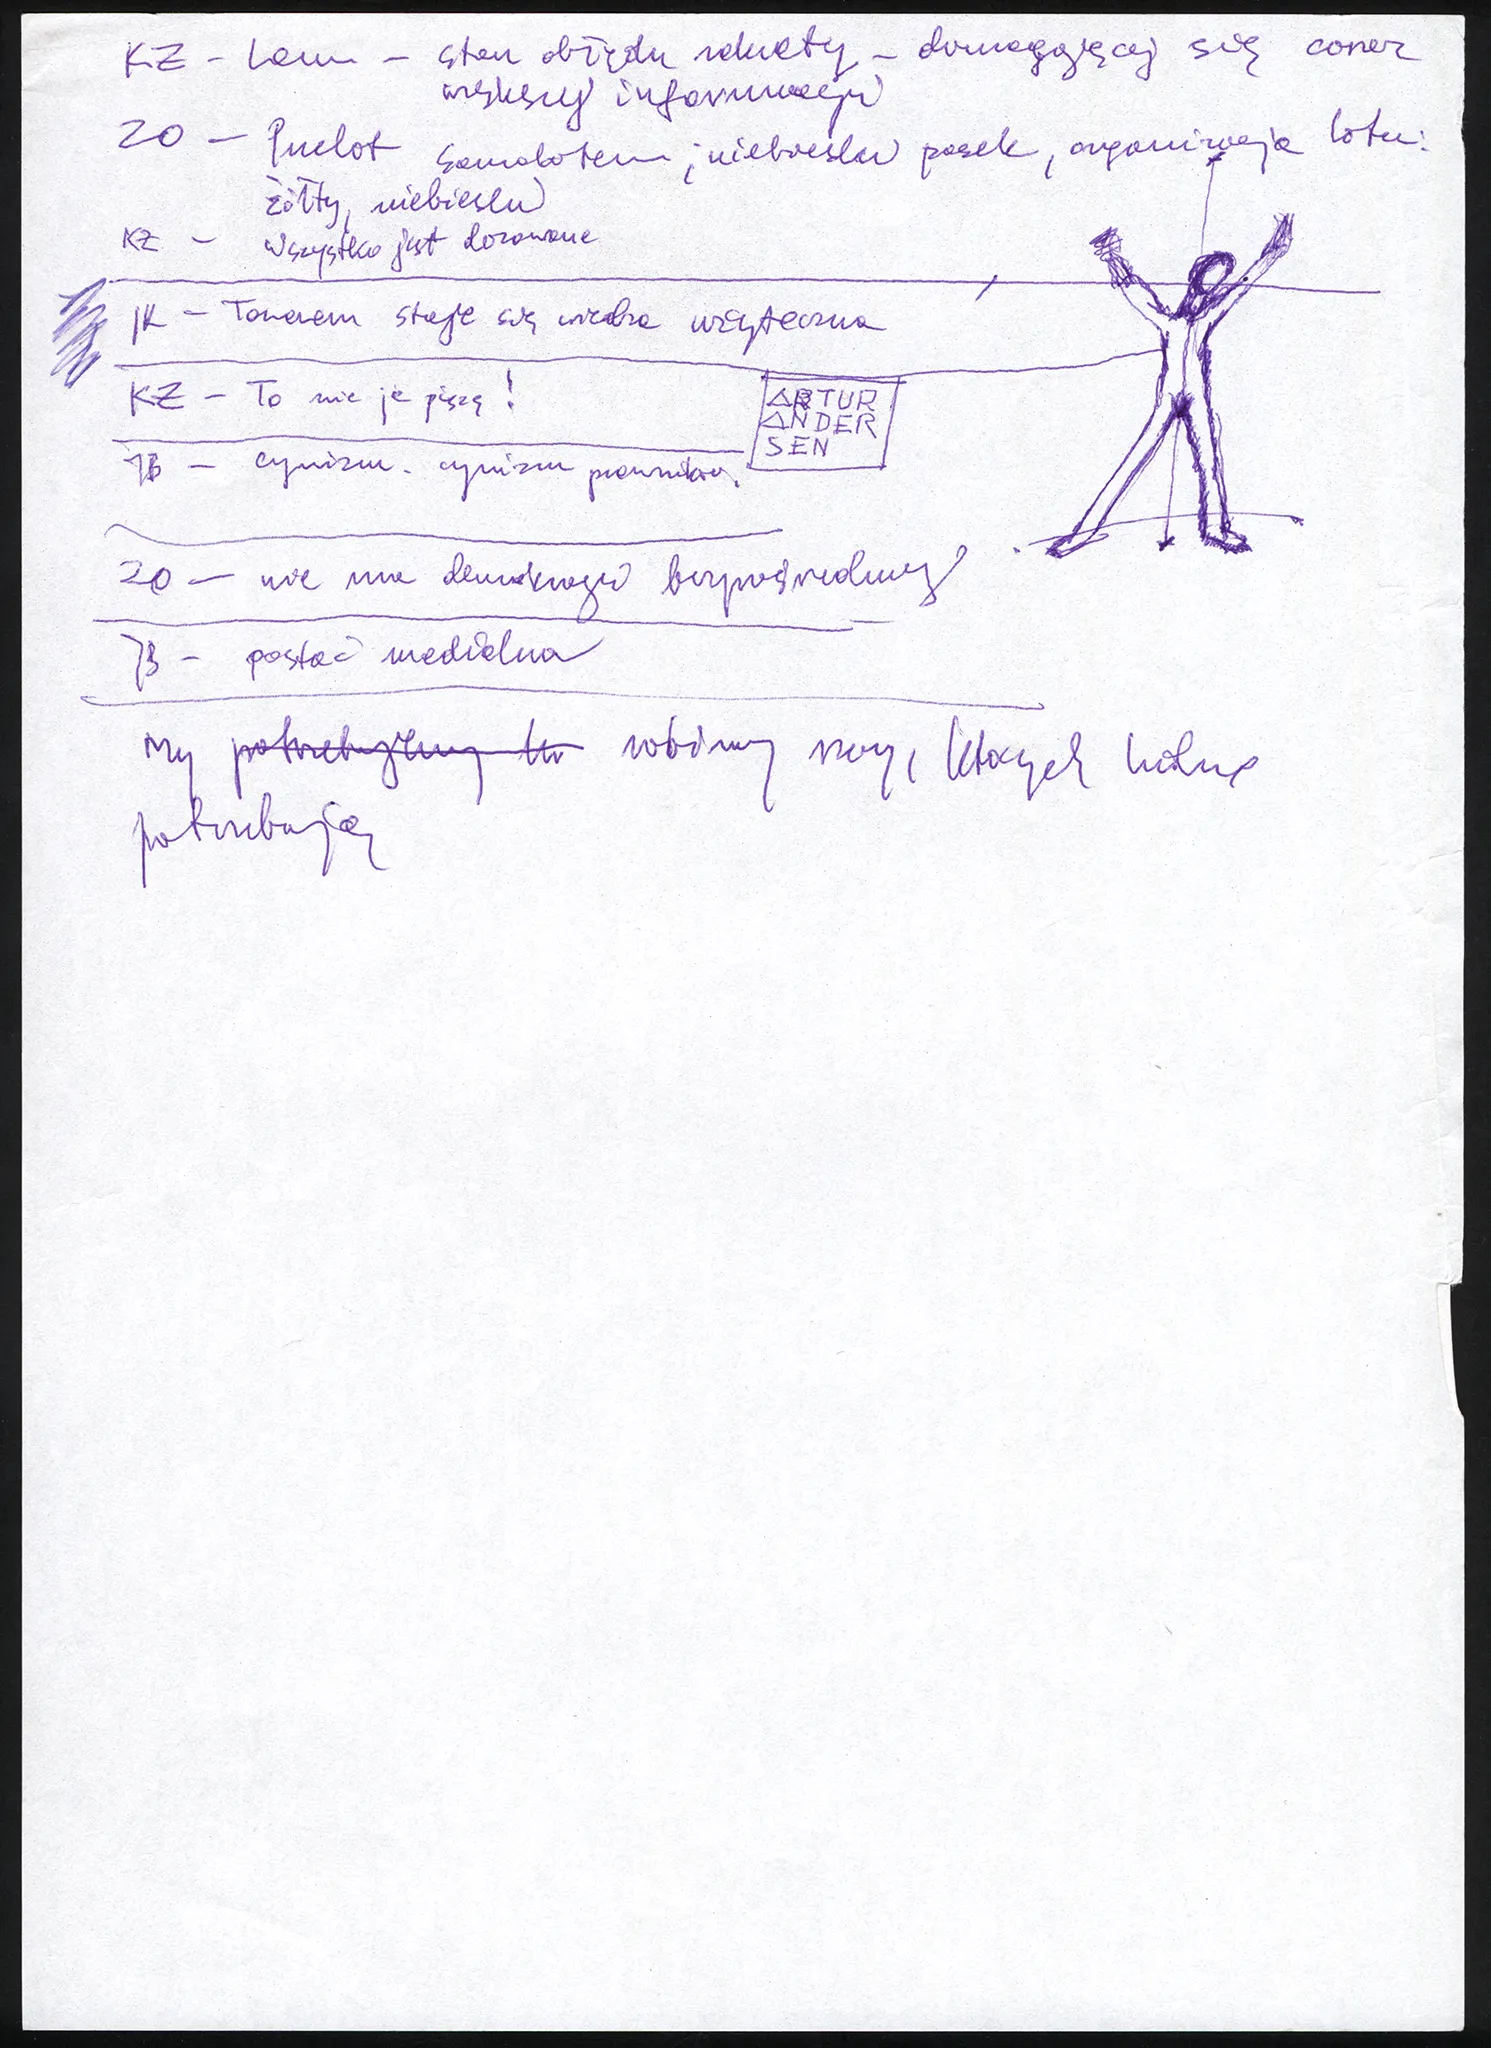 KZ - Lem - stan obłędu rakiety - domagającej się coraz
większej informacji
ZO - Przelot samolotem, niebieski pasek, organizacja lotu:
żółty, niebieski
KZ - wszystko jest dozowane
JK - Towarem staje się wiedza użyteczna
KZ - To nie ja piszę!
ARTUR
ANDER
SEN
JB - cynizm. cynizm prawników.
ZO - nie ma demokracji bezpośredniej
JB - postać medialna
My potrzebujemy robimy rzeczy, których ludzie
potrzebują